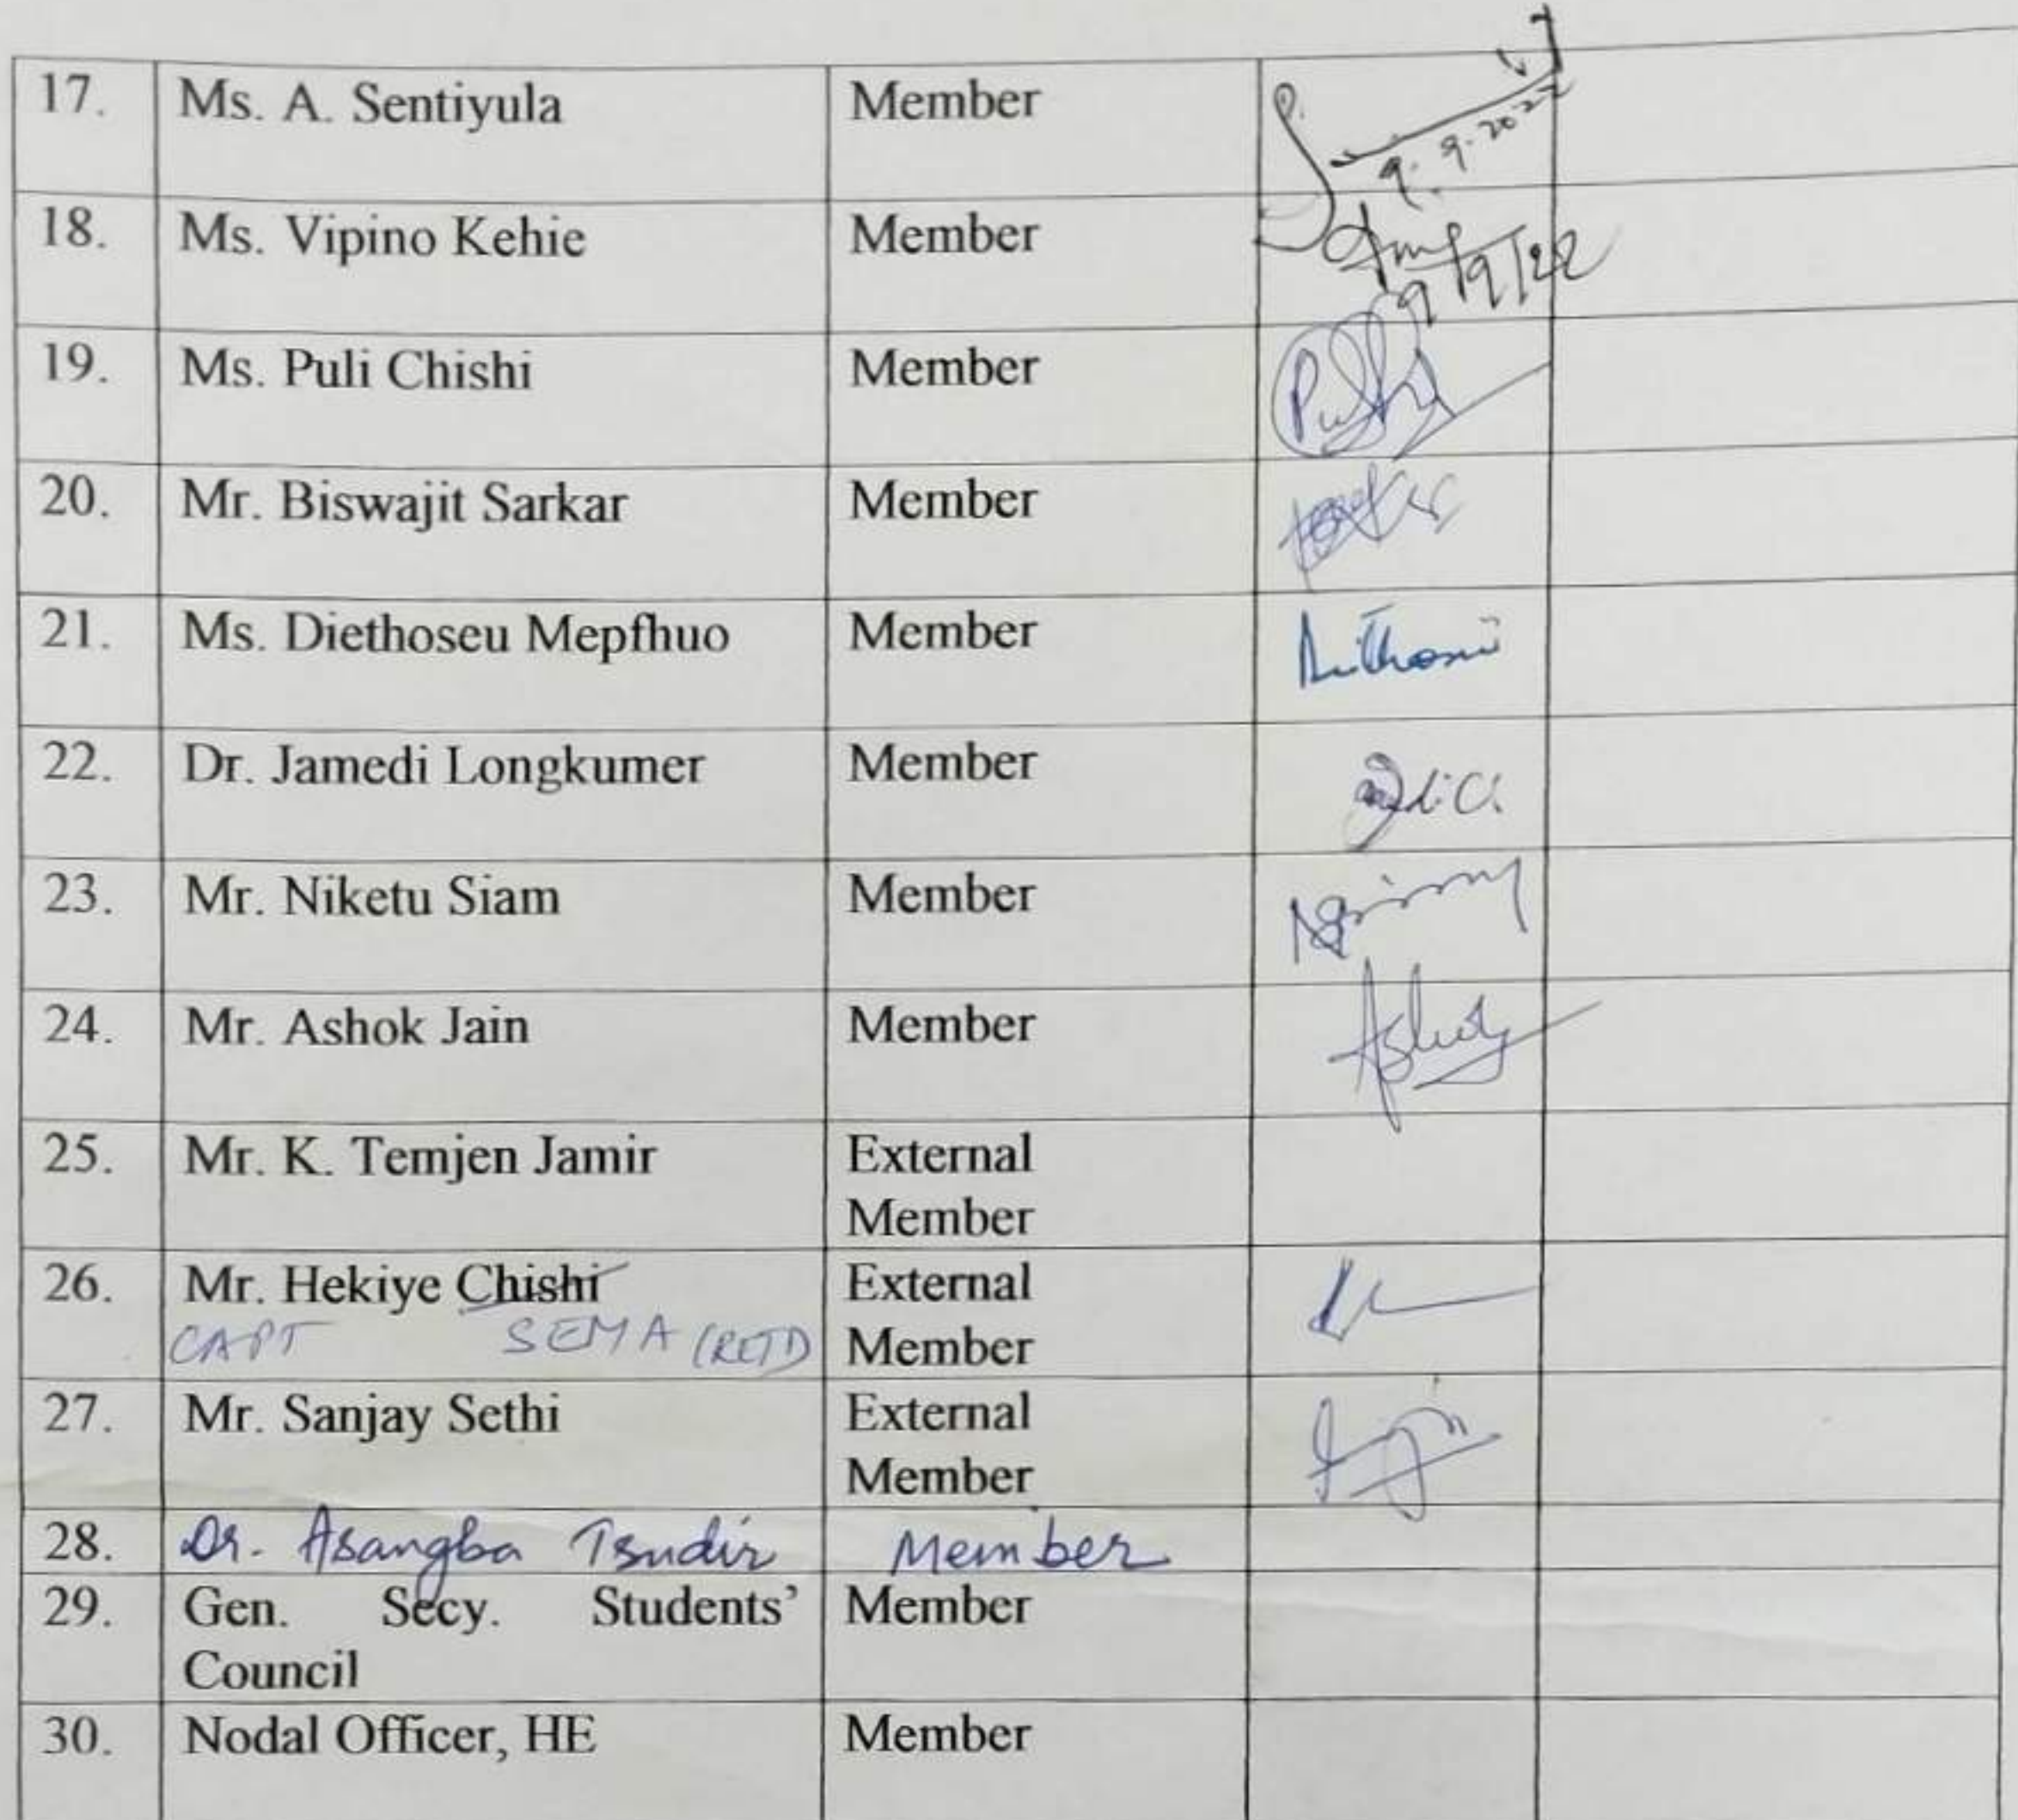 17. Ms. A. Sentiyula Member
9.9.2022
18. Ms. Vipino Kehie Member
9/9/22
19. Ms. Puli Chishi Member
20. Mr. Biswajit Sarkar Member
21. Ms. Diethoseu Mepfhuo Member
22. Dr. Jamedi Longkumer Member
23. Mr. Niketu Siam Member
24. Mr. Ashok Jain Member
25. Mr. K. Temjen Jamir External
Member
26. Mr. Hekiye Chishi External
CAPT SEMA (RETD) Member
27. Mr. Sanjay Sethi External
Member
28. Dr. Asangba Tsudir Member
29. Gen. Secy. Students' Member
Council
30. Nodal Officer, HE Member